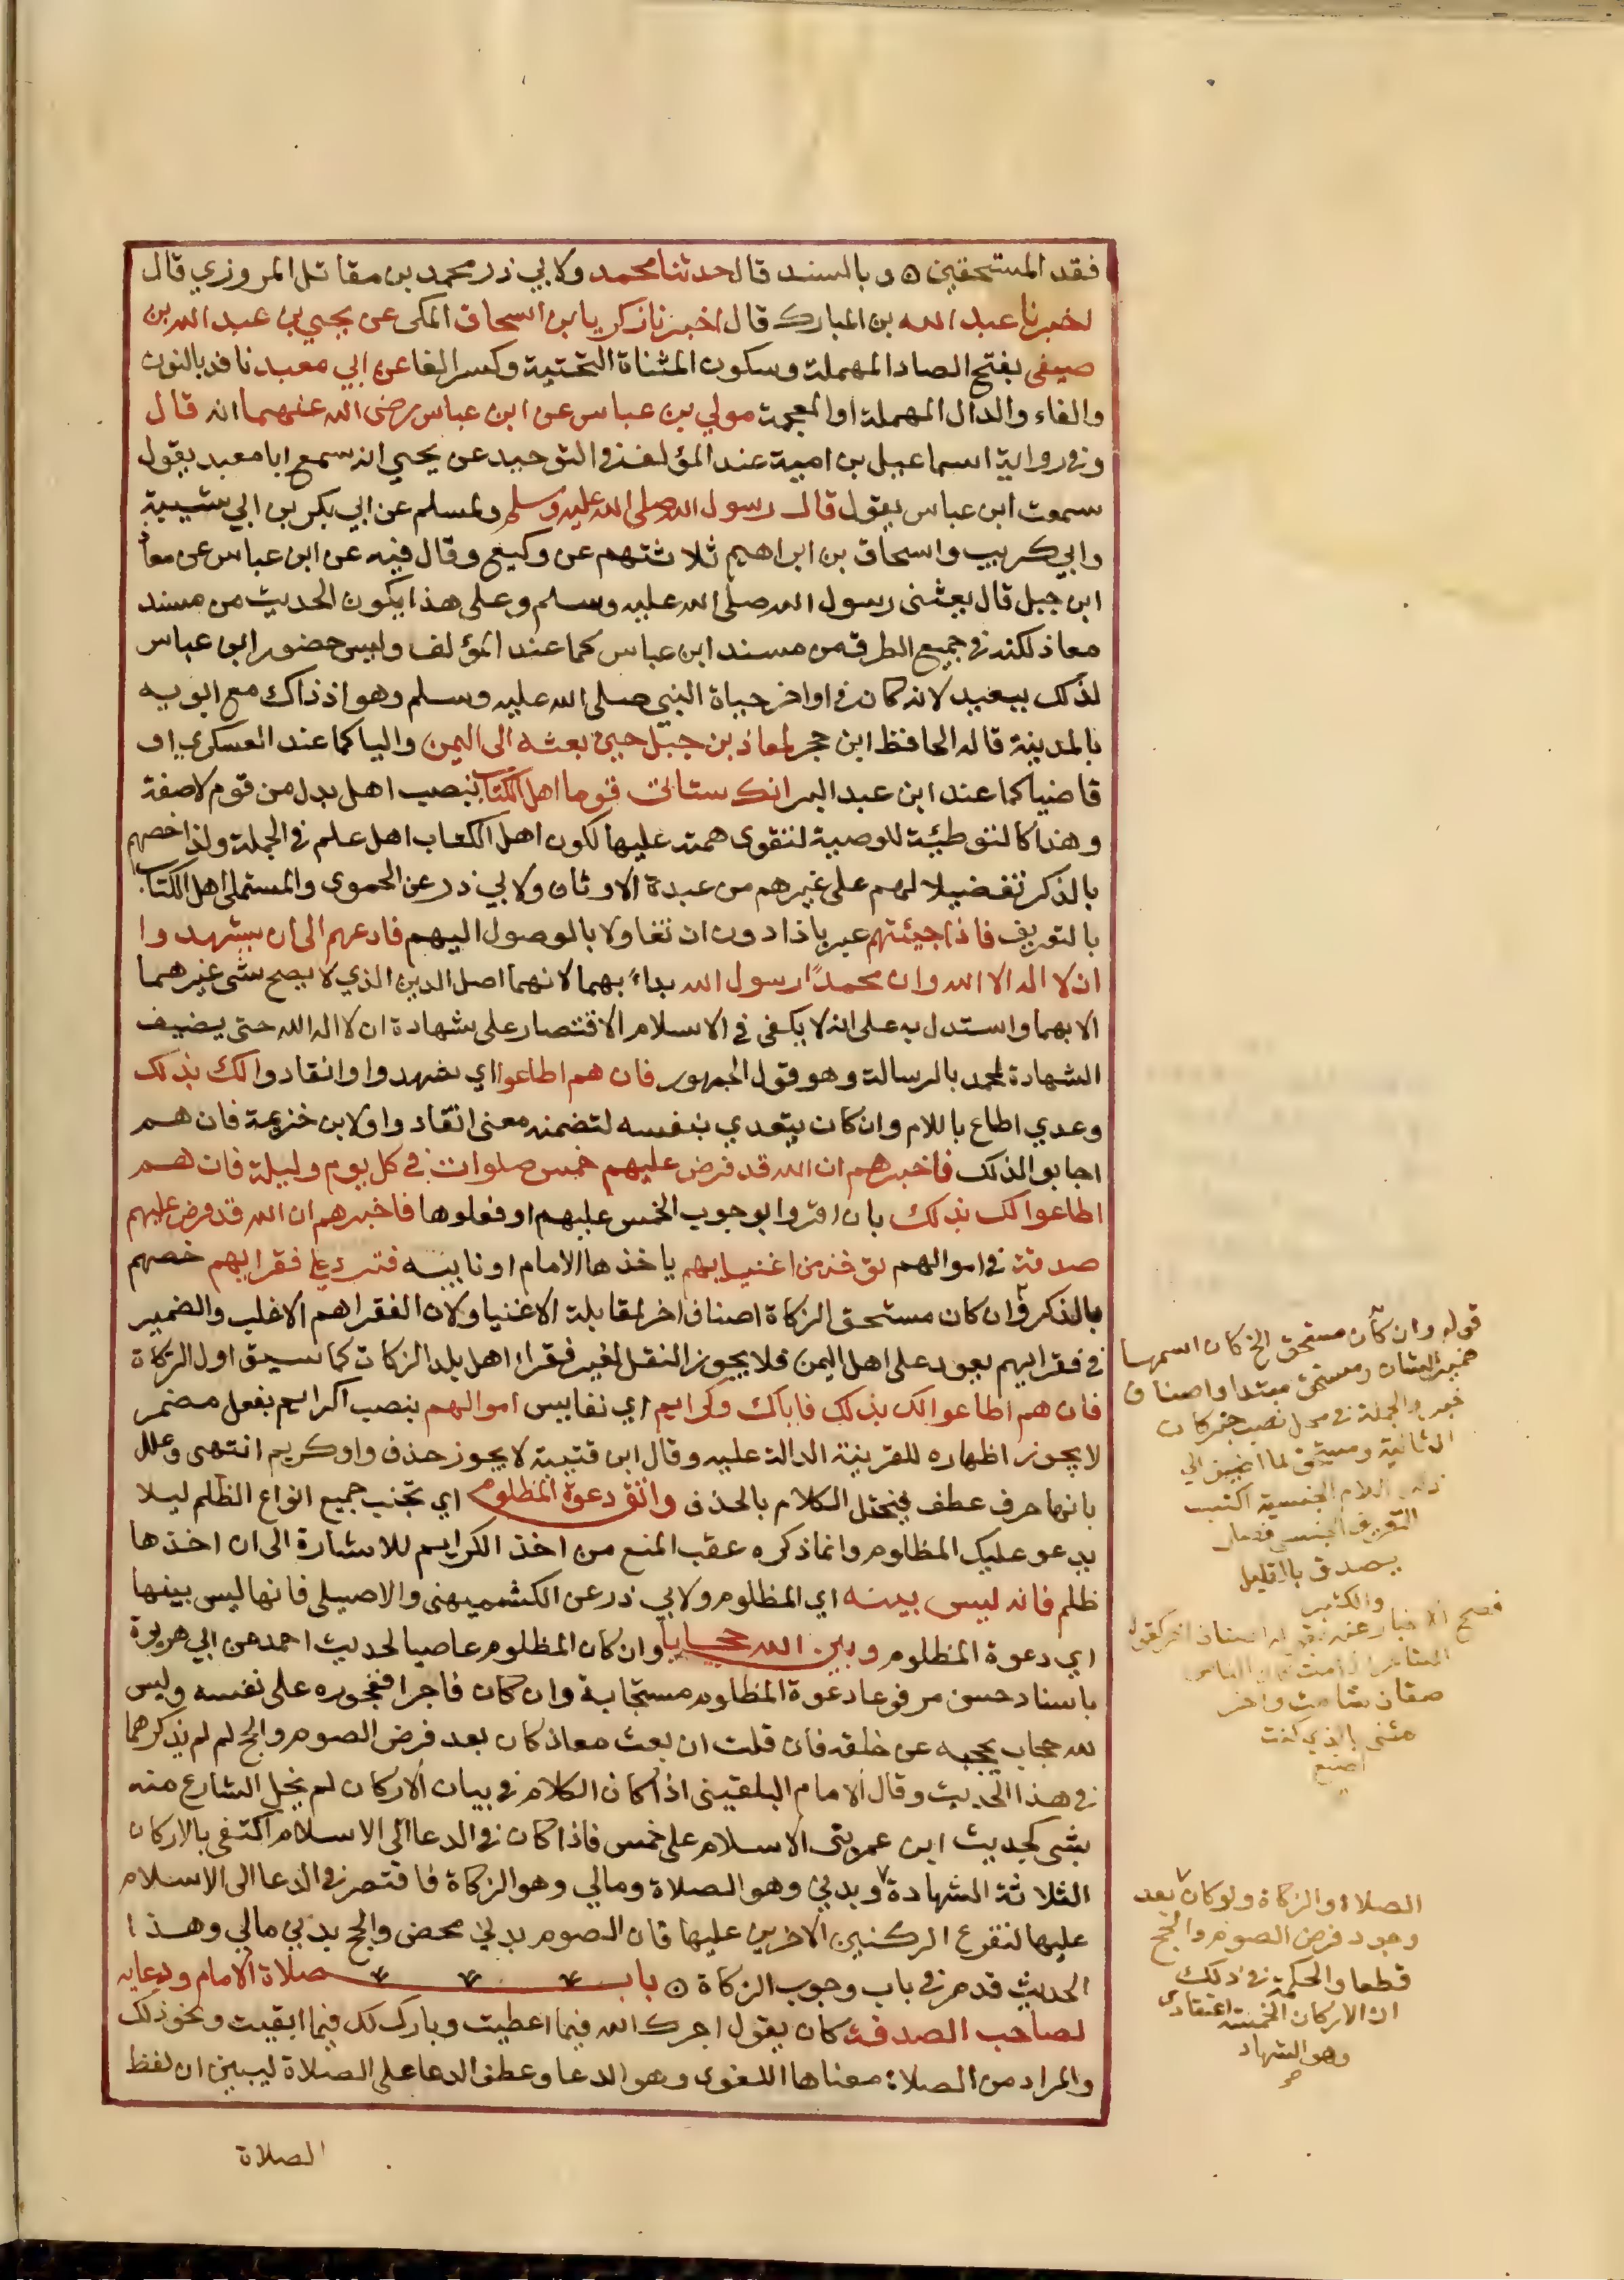 فقد المستحقين ۝ وبالسند قال حدثنا محمد ولابي ذر محمد بن مقاتل المروزي قال
اخبرنا عبد الله بن المبارك قال اخبرنا زكريا بن اسحاق المكي عن يحيي بن عبد الله بن
صيفي بفتح الصاد المهملة وسكون المثناة التحتية وكسر الفا عن ابي معبد نافد بالنون
والفاء والدال المهملة او المعجمة مولي بن عباس عن ابن عباس رضى الله عنهما انه قال
وفي رواية اسماعيل بن امية عند المؤلف في التوحيد عن يحيي انه سمع ابا معبد يقول
سمعت ابن عباس يقول قال رسول الله صلى الله عليه وسلم ولمسلم عن ابي بكر بن ابي شيبة
وابي كريب واسحاق بن ابراهيم ثلاثتهم عن وكيع وقال فيه عن ابن عباس عن معاذ
ابن جبل قال بعثنى رسول الله صلى الله عليه وسلم وعلى هذا يكون الحديث من مسند
معاذ لكنه في جميع الطرق من مسند ابن عباس كما عند المؤلف وليس حضور ابن عباس
لذلك ببعيد لانه كان في اواخر حياة النبي صلى الله عليه وسلم وهو اذ ذاك مع ابويه
بالمدينة قاله الحافظ ابن حجر لمعاذ بن جبل حين بعثه الى اليمن واليا كما عند العسكري او
قاضيا كما عند ابن عبد البر انك ستاتى قوما اهل الكتاب بنصب اهل بدل من قوم لا صفة
وهذا كالتوطئة للوصية لتقوى همته عليها لكون اهل الكتاب اهل علم في الجملة ولذا خصهم
بالذكر تفضيلا لهم على غيرهم من عبدة الاوثان ولابي ذر عن الحموي والمستملى اهل الكتاب
بالتعريف فاذا جيئتهم عبر باذا دون ان تفاولا بالوصول اليهم فادعهم الى ان يشهدوا
ان لا اله الا الله وان محمدًا رسول الله بداء بهما لانهما اصل الدين الذي لا يصح شى غيرهما
الا بهما واستدل به على انه لا يكفى في الاسلام الاقتصار على شهادة ان لا اله الا الله حتى يضيف
الشهادة لمحمد بالرسالة وهو قول الجمهور فان هم اطاعوا اي شهدوا وانقادوا لك بذلك
وعدي اطاع باللام وان كان يتعدي بنفسه لتضمنه معنى انقاد واولابن خزيمة فان هم
اجابوا لذلك فاخبرهم ان الله قد فرض عليهم خمس صلوات في كل يوم وليلة فان هم
اطاعوا لك بذلك بان اقروا بوجوب الخمس عليهم او فعلوها فاخبرهم ان الله قد فرض عليهم
صدقة في اموالهم توخذ من اغنيايهم ياخذها الامام او نايبه فترد على فقرايهم خصهم
بالذكر وان كان مستحق الزكاة اصناف اخر لمقابلة الاغنيا ولان الفقرا هم الاغلب والضمير
في فقرايهم يعود على اهل اليمن فلا يجوز النقل لغير فقراء اهل بلد الزكات كما سبق اول الزكاة
فان هم اطاعوا لك بذلك فاياك وكرايم اي نفايس اموالهم بنصب اكرايم بفعل مضمر
لا يجوز اظهاره للقرينة الدالة عليه وقال ابن قتيبة لا يجوز حذف واو كريم انتهى وعلل
بانها حرف عطف فيختل الكلام بالحذف واتق دعوة المظلوم اي تجنب جميع انواع الظلم ليلا
يدعو عليك المظلوم وانما ذكره عقب المنع من اخذ الكرايم للاشارة الى ان اخذها
ظلم فانه ليس بينه اي المظلوم ولابي ذر عن الكشميهنى والاصيلى فانها ليس بينها
اي دعوة المظلوم وبين الله حجاب وان كان المظلوم عاصيا لحديث احمد عن ابي هريرة
باسناد حسن مرفوعا دعوة المظلوم مستجابة وان كان فاجرا ففجوره على نفسه وليس
لله حجاب يحجبه عن خلقه فان قلت ان بعث معاذ كان بعد فرض الصوم والحج لم لم يذكرهما
في هذا الحديث وقال الامام البلقينى اذا كان الكلام في بيان الاركان لم يخل الشارع منه
بشى كحديث ابن عمر بنى الاسلام على خمس فاذا كان في الدعا الى الاسلام اكتفى بالاركان
الثلاثة الشهادة وبدني وهو الصلاة ومالي وهو الزكاة فاقتصر في الدعا الى الاسلام
عليها لتفرع الركنين الاخرين عليها فان الصوم بدني محض والحج بدني مالي وهذا
الحديث قد مر في باب وجوب الزكاة ۝ باب صلاة الامام ودعايه
لصاحب الصدقة كان يقول اجرك الله فيما اعطيت وبارك لك فيما ابقيت ونحو ذلك
والمراد من الصلاة معناها اللغوى وهو الدعا وعطف الدعا على الصلاة ليبين ان لفظ
الصلاة
قوله وان كان مستحق الخ كان اسمها
ضمير الشان ومستحق مبتدا واصناف
خبره والجملة في محل نصب خبر كان
الثانية ومستحق لما اضيف الي
اللام الجنسية اكتسب
التعريف الجنسى فصار
يصدق بالقليل
والكثير
فصح الاخبار عنه
صنفان شامت واخر
مثنى بالذي كنت
اصنع
الصلاة والزكاة ولو كان بعد
وجود فرض الصوم والحج
قطعا والحكمة في ذلك
ان الاركان الخمسة اعتقادي
وهو الشهاد
صح